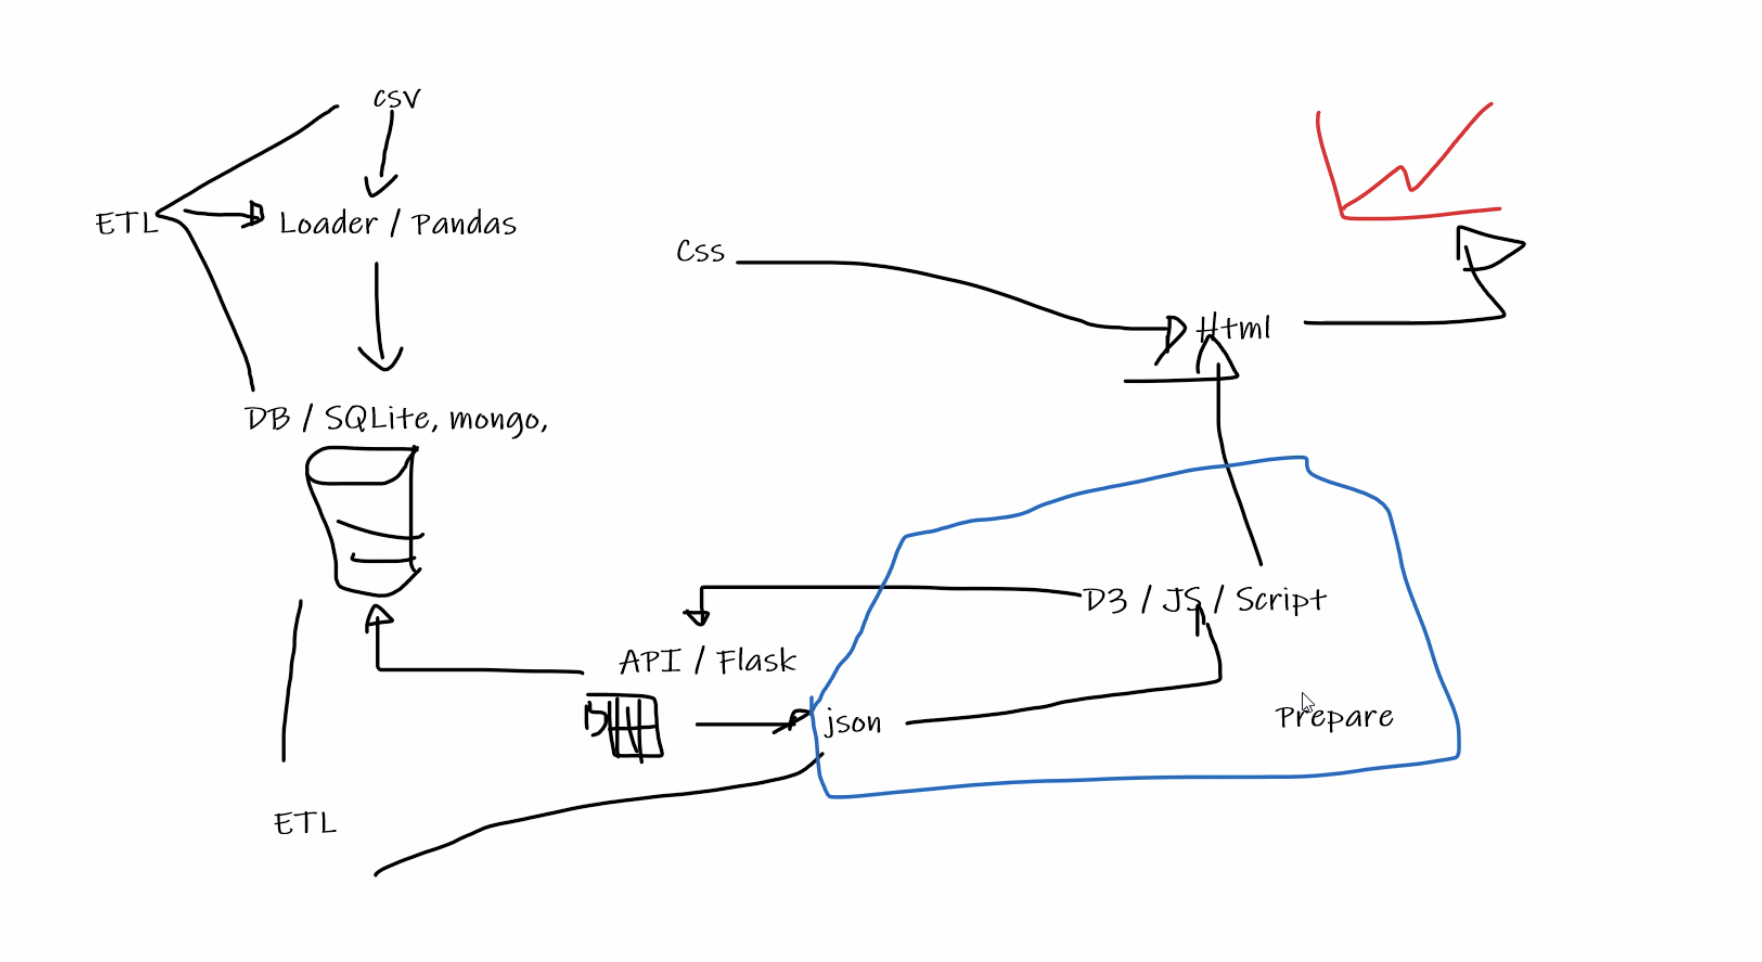 csv
ETL
Loader / Pandas
Css
Html
DB / SQLite, mongo,
D3 / JS / Script
API / Flask
json
Prepare
ETL